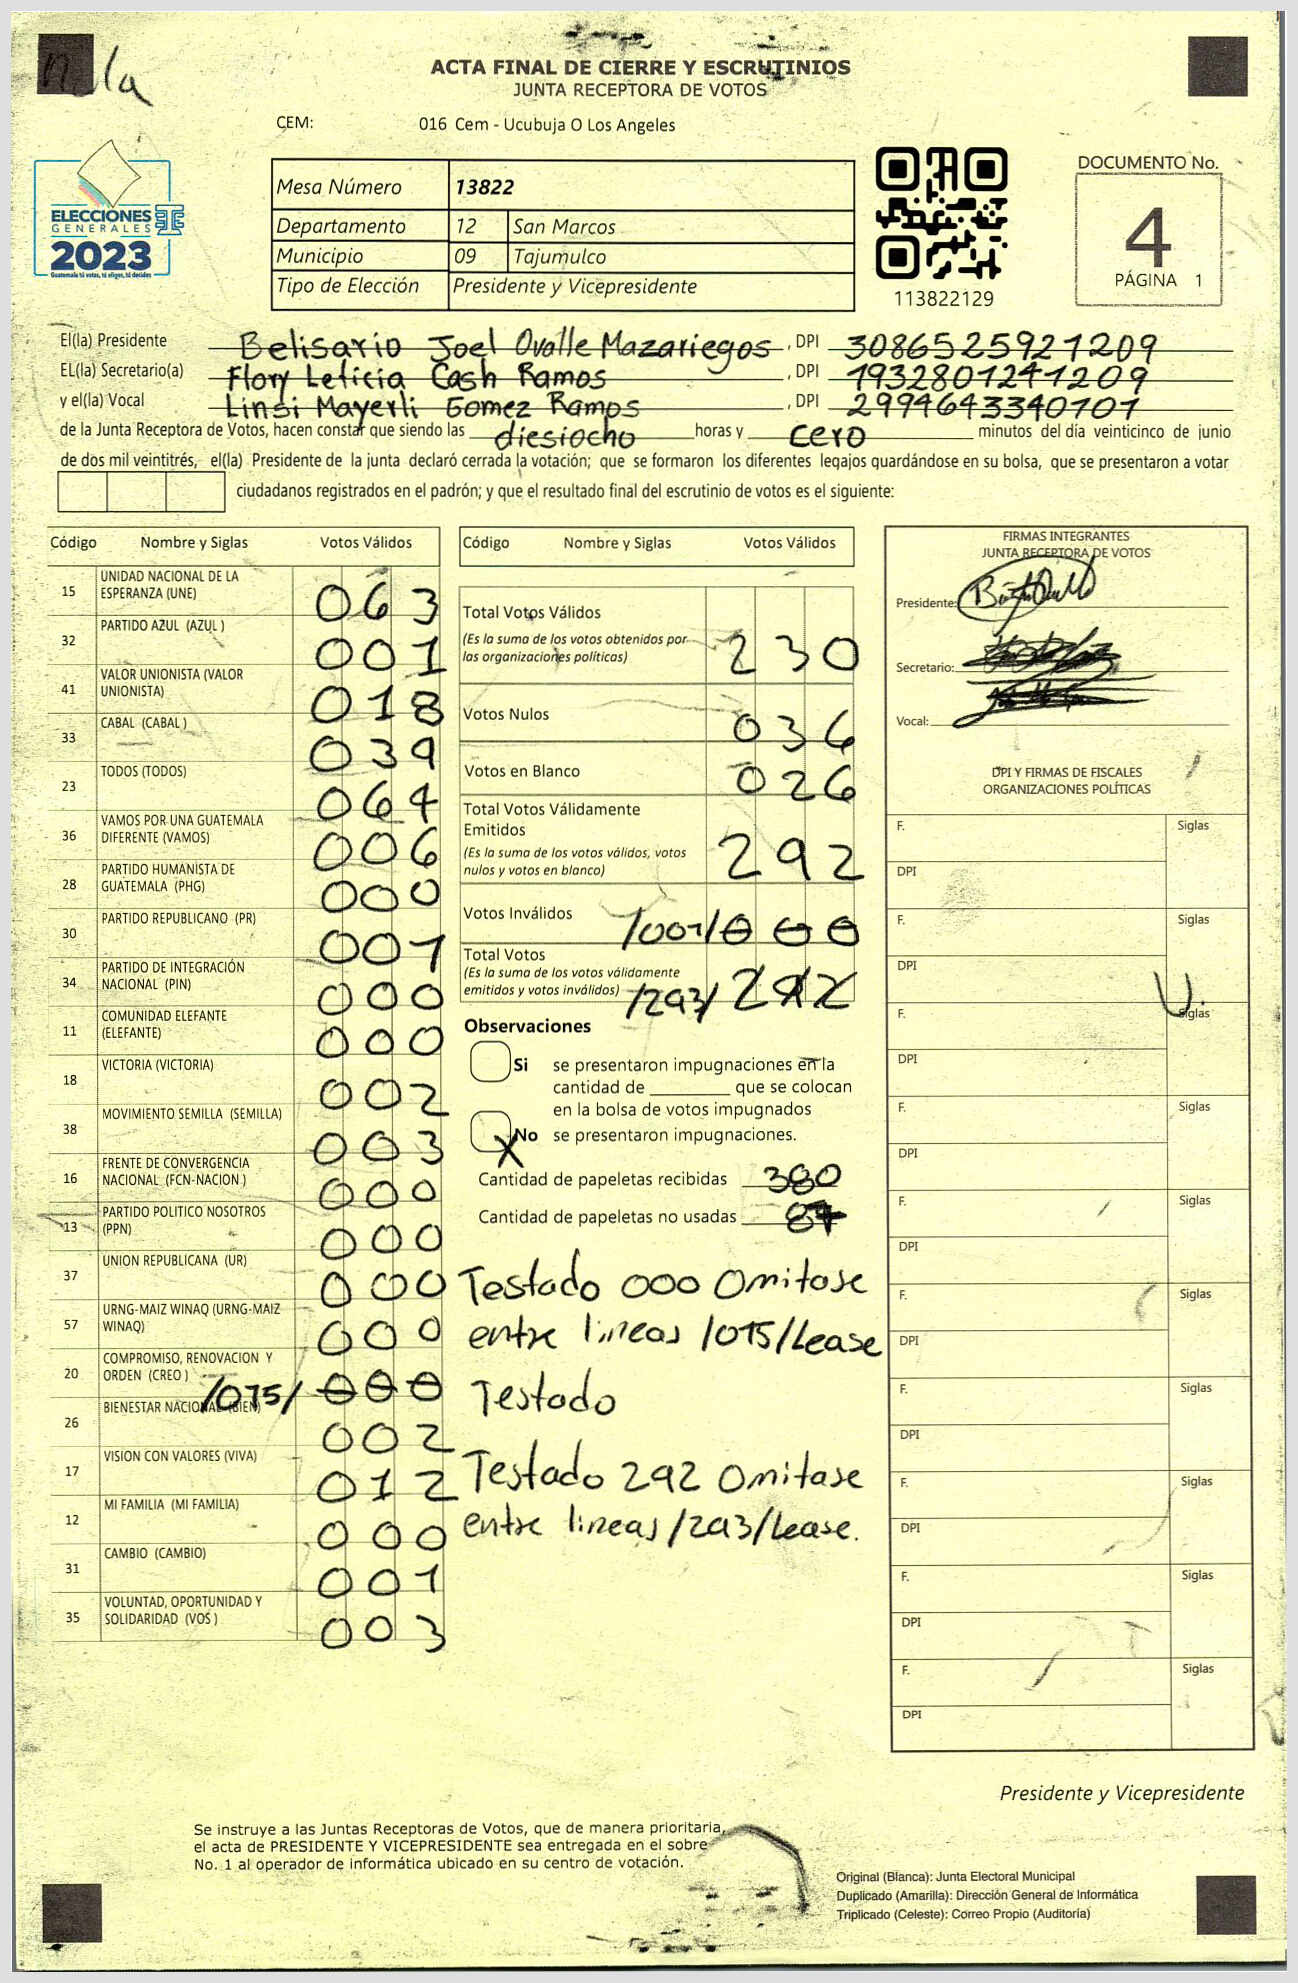 nula
ACTA FINAL DE CIERRE Y ESCRUTINIOS
JUNTA RECEPTORA DE VOTOS
CEM: 016 Cem - Ucubuja O Los Angeles
ELECCIONES
GENERALES
2023
Guatemala tú votas, tú eliges, tú decides
Mesa Número 13822
Departamento 12 San Marcos
Municipio 09 Tajumulco
Tipo de Elección Presidente y Vicepresidente
113822129
DOCUMENTO No.
4
PÁGINA 1
El(la) Presidente Belisario Joel Ovalle Mazariegos, DPI 3086525921209
EL(la) Secretario(a) Flory Leticia Cash Ramos, DPI 1932801241209
y el(la) Vocal Linsi Mayerli Gomez Ramos, DPI 2994643340101
de la Junta Receptora de Votos, hacen constar que siendo las diesiocho horas y cero minutos del día veinticinco de junio
de dos mil veintitrés, el(la) Presidente de la junta declaró cerrada la votación; que se formaron los diferentes legajos guardándose en su bolsa, que se presentaron a votar
ciudadanos registrados en el padrón; y que el resultado final del escrutinio de votos es el siguiente:
Código Nombre y Siglas Votos Válidos
15 UNIDAD NACIONAL DE LA ESPERANZA (UNE) 063
32 PARTIDO AZUL (AZUL ) 001
41 VALOR UNIONISTA (VALOR UNIONISTA) 018
33 CABAL (CABAL ) 039
23 TODOS (TODOS) 064
36 VAMOS POR UNA GUATEMALA DIFERENTE (VAMOS) 006
28 PARTIDO HUMANISTA DE GUATEMALA (PHG) 000
30 PARTIDO REPUBLICANO (PR) 001
34 PARTIDO DE INTEGRACIÓN NACIONAL (PIN) 000
11 COMUNIDAD ELEFANTE (ELEFANTE) 000
18 VICTORIA (VICTORIA) 002
38 MOVIMIENTO SEMILLA (SEMILLA) 003
16 FRENTE DE CONVERGENCIA NACIONAL (FCN-NACION ) 000
13 PARTIDO POLITICO NOSOTROS (PPN) 000
37 UNION REPUBLICANA (UR) 000
57 URNG-MAIZ WINAQ (URNG-MAIZ WINAQ) 000
20 COMPROMISO, RENOVACION Y ORDEN (CREO ) /015/ 000
26 BIENESTAR NACIONAL (BIEN) 002
17 VISION CON VALORES (VIVA) 012
12 MI FAMILIA (MI FAMILIA) 000
31 CAMBIO (CAMBIO) 001
35 VOLUNTAD, OPORTUNIDAD Y SOLIDARIDAD (VOS ) 003
Código Nombre y Siglas Votos Válidos
Total Votos Válidos 230
(Es la suma de los votos obtenidos por
las organizaciones políticas)
Votos Nulos 036
Votos en Blanco 026
Total Votos Válidamente
Emitidos 292
(Es la suma de los votos válidos, votos
nulos y votos en blanco)
Votos Inválidos /001/ 000
Total Votos
(Es la suma de los votos válidamente
emitidos y votos inválidos) /293/ 292
Observaciones
Si se presentaron impugnaciones en la
cantidad de ________ que se colocan
en la bolsa de votos impugnados
X No se presentaron impugnaciones.
Cantidad de papeletas recibidas 380
Cantidad de papeletas no usadas 87
Testado 000 Omitase
entre lineas /015/Lease
Testado
Testado 292 Omitase
entre lineas /293/Lease.
FIRMAS INTEGRANTES
JUNTA RECEPTORA DE VOTOS
Presidente:
Secretario:
Vocal:
DPI Y FIRMAS DE FISCALES
ORGANIZACIONES POLÍTICAS
F. Siglas
DPI
F. Siglas
DPI
F. Siglas
DPI
F. Siglas
DPI
F. Siglas
DPI
F. Siglas
DPI
F. Siglas
DPI
F. Siglas
DPI
F. Siglas
DPI
F. Siglas
DPI
Presidente y Vicepresidente
Se instruye a las Juntas Receptoras de Votos, que de manera prioritaria,
el acta de PRESIDENTE Y VICEPRESIDENTE sea entregada en el sobre
No. 1 al operador de informática ubicado en su centro de votación.
Original (Blanca): Junta Electoral Municipal
Duplicado (Amarilla): Dirección General de Informática
Triplicado (Celeste): Correo Propio (Auditoría)